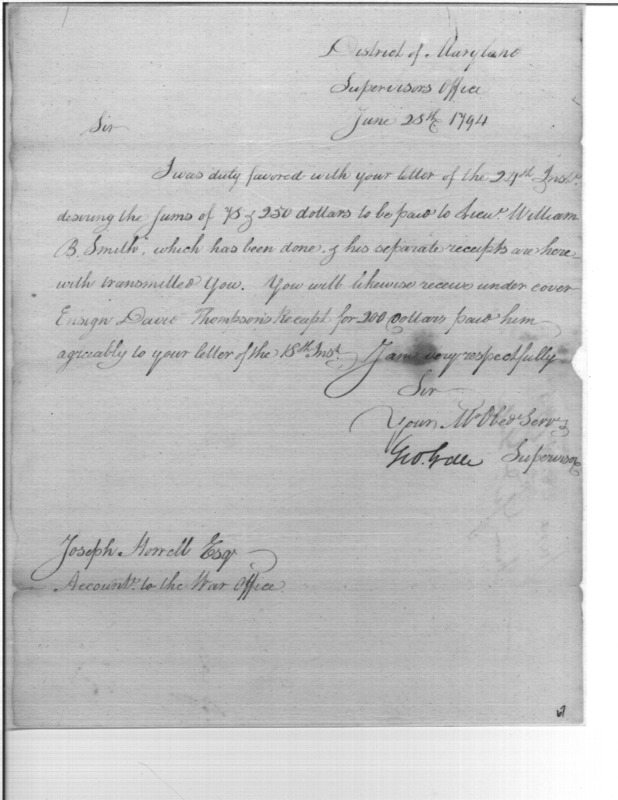 District of Maryland
Supervisors Office
June 25th 1794
Sir
I was duly favored with your letter of the 24th Inst.
desiring the sums of 75 & 250 dollars to be paid to Lieut. William
B. Smith, which has been done, & his separate receipts are here
with transmitted you. You will likewise receive under cover
Ensign David Thompson's Receipt for 200 Dollars paid him
agreeably to your letter of the 15th Inst. I am very respectfully
Sir
Your Mo Obed. Serv.
Geo. Gale Supervisor
Joseph Howell Esqr
Accountt. to the War Office